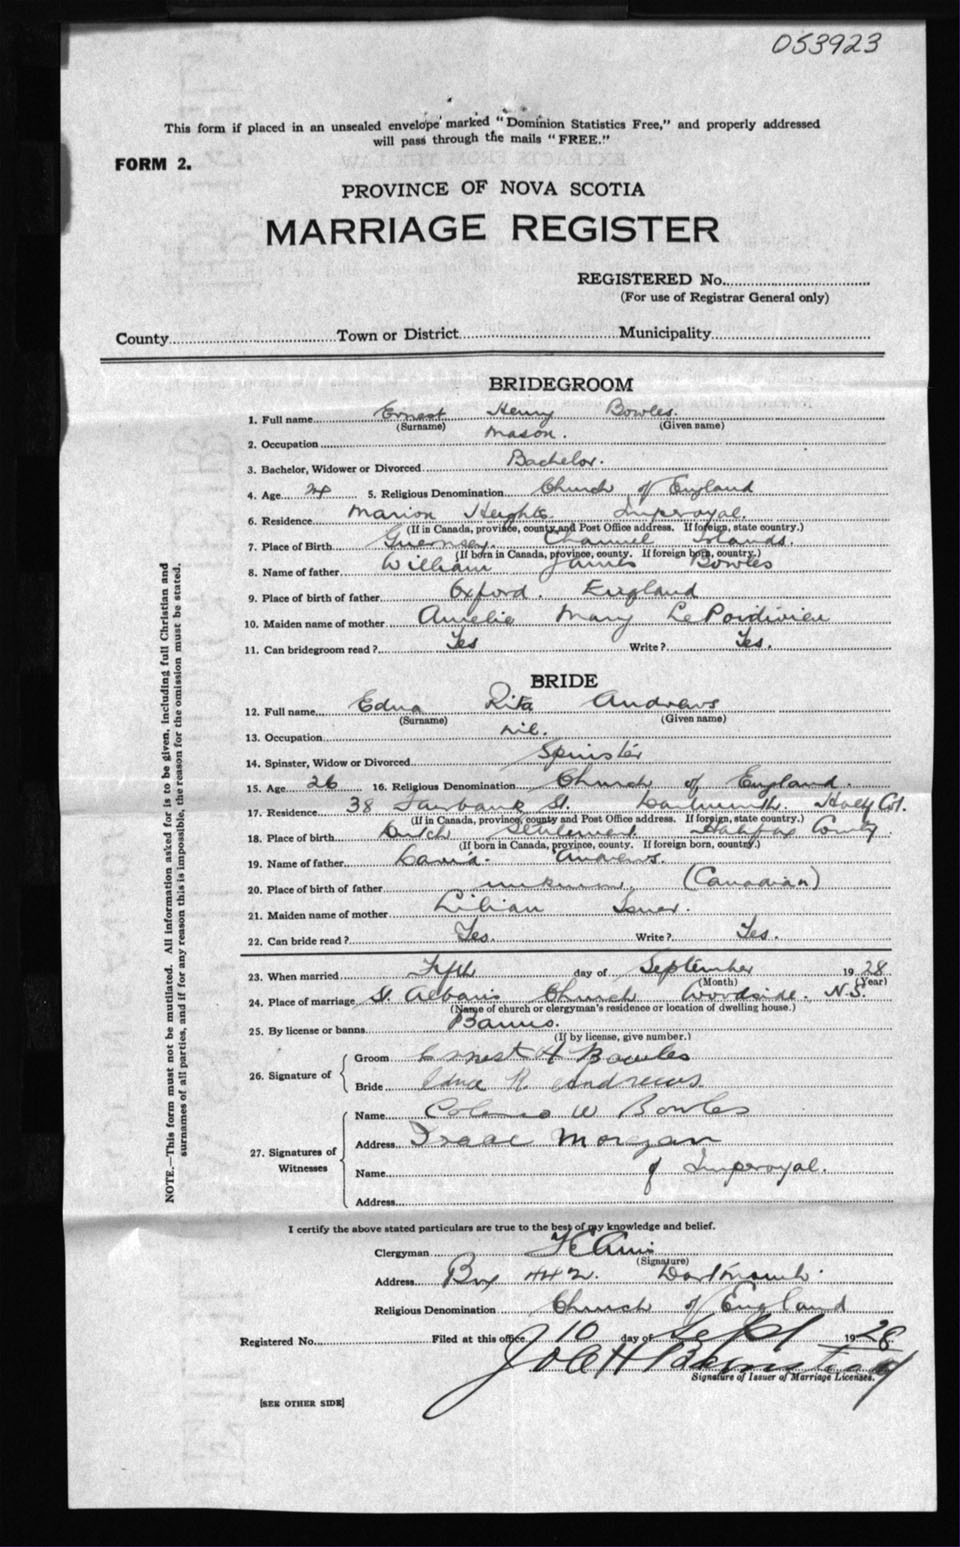 053923
This form if placed in an unsealed envelope marked "Dominion Statistics Free," and properly addressed
will pass through the mails "FREE."
FORM 2.
PROVINCE OF NOVA SCOTIA
MARRIAGE REGISTER
REGISTERED No.
(For use of Registrar General only)
County Town or District Municipality
BRIDEGROOM
1. Full name Ernest Henry Bowles.
(Surname) (Given name)
2. Occupation Mason.
3. Bachelor, Widower or Divorced Bachelor.
4. Age 5. Religious Denomination Church of England
6. Residence Marion Heights Imperoyal.
(If in Canada, province, county and Post Office address. If foreign, state country.)
7. Place of Birth Guernsey. Channel Islands.
(If born in Canada, province, county. If foreign born, country.)
8. Name of father William James Bowles
9. Place of birth of father Oxford. England
10. Maiden name of mother Amelia Mary Le
11. Can bridegroom read? Yes Write? Yes.
BRIDE
12. Full name Edna Rita Andrews
(Surname) (Given name)
13. Occupation nil.
14. Spinster, Widow or Divorced Spinster
15. Age 26 16. Religious Denomination Church of England.
17. Residence 38 Fairbank St. Dartmouth. Co.
(If in Canada, province, county and Post Office address. If foreign, state country.)
18. Place of birth Dutch Settlement. Halifax County.
(If born in Canada, province, county. If foreign born, country.)
19. Name of father Andrews.
20. Place of birth of father unknown. (Canadian)
21. Maiden name of mother Lilian
22. Can bride read? Yes. Write? Yes.
23. When married Fifth day of September 1928
(Month) (Year)
24. Place of marriage St. Albans Church Woodside. N.S.
(Name of church or clergyman's residence or location of dwelling house.)
25. By license or banns Banns.
(If by license, give number.)
26. Signature of
Groom Ernest H Bowles
Bride Edna R Andrews
27. Signatures of Witnesses
Name W Bowles
Address Isaac Morgan
Name of Imperoyal.
Address
I certify the above stated particulars are true to the best of my knowledge and belief.
Clergyman
(Signature)
Address Box 442. Dartmouth.
Religious Denomination Church of England
Registered No. Filed at this office 10 day of Sept 1928
Signature of Issuer of Marriage Licenses.
[SEE OTHER SIDE]
NOTE.—This form must not be mutilated. All information asked for is to be given, including full Christian and
surnames of all parties, and if for any reason this is impossible, the reason for the omission must be stated.